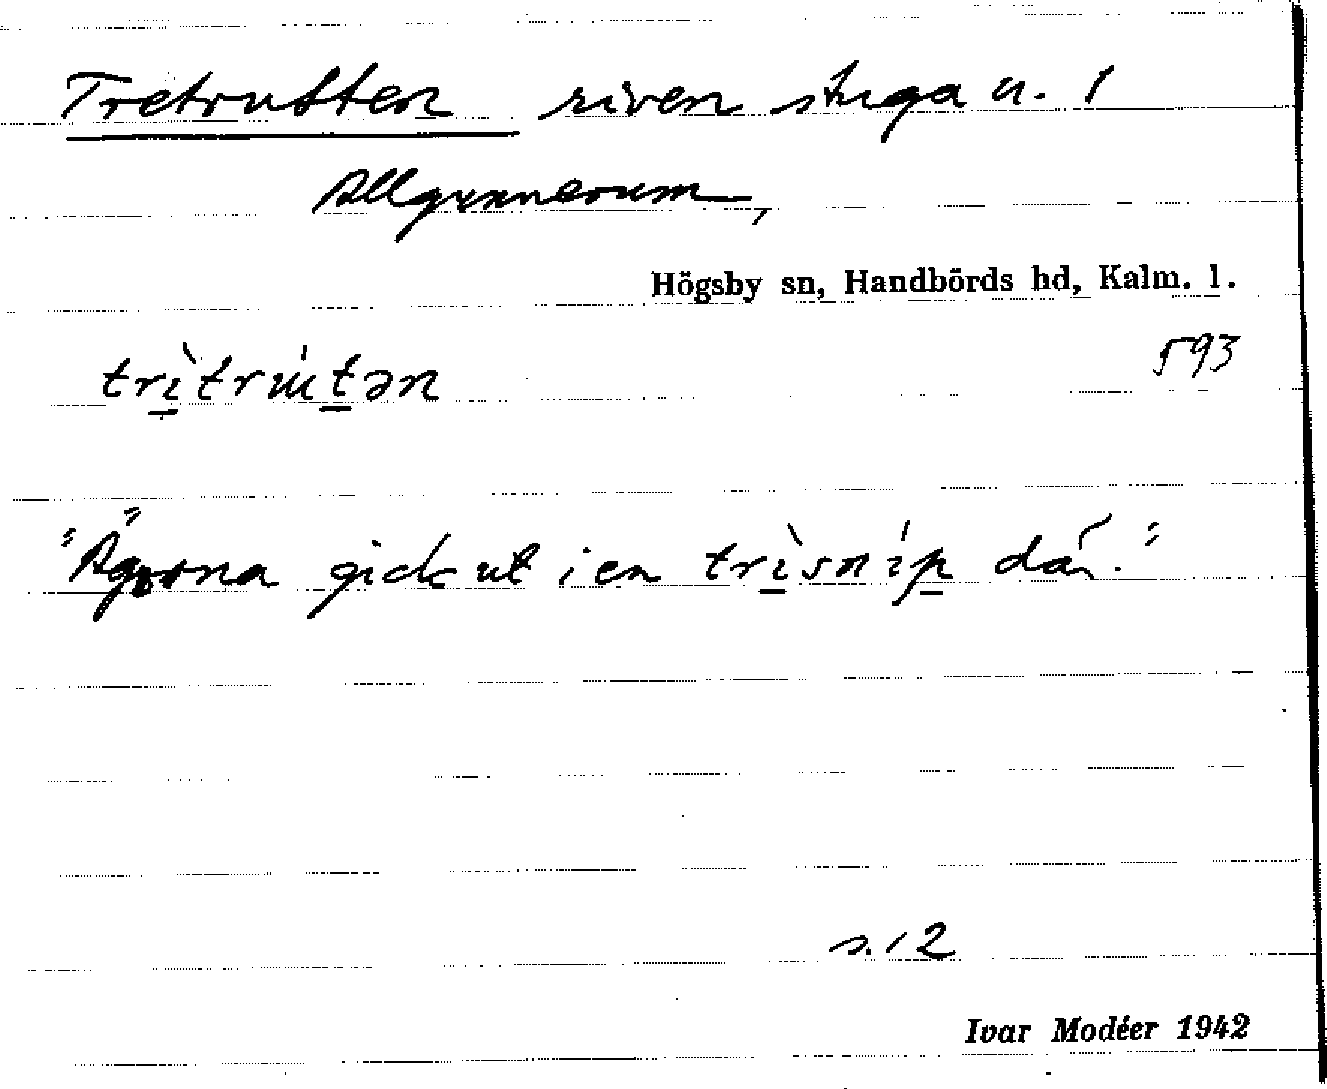 Tretrutten riven stuga u. 1
Allgunnerum,
Högsby sn, Handbörds hd, Kalm. l.
593
trìtrútən
"Ägorna gick ut i en trìsníp där."
s. 12
Ivar Modéer 1942